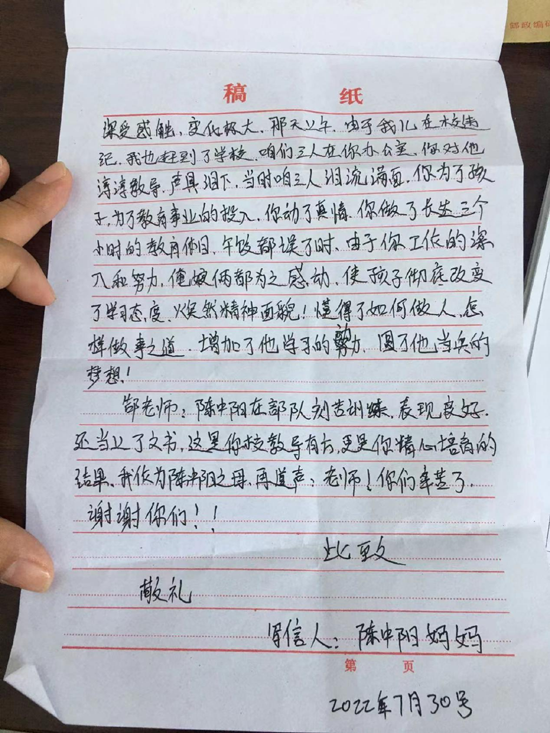 邮政编码
稿 纸
深受感触，变化极大，那天上午，由于我儿在校违
纪，我也赶到了学校，咱们三人在你办公室，你对他
谆谆教导，声具泪下，当时咱三人泪流满面，你为了孩
子，为了教育事业的投入，你动了真情，你做了长达三个
小时的教育作自，午饭都误了时，由于你工作的深
入和努力，俺娘俩都为之感动，使孩子彻底改变
了学习态度，焕然精神面貌！懂得了如何做人，怎
样做事之道，增加了他学习的努力，圆了他当兵的
梦想！
郜老师：陈中阳在部队刻苦训练，表现良好，
还当上了文书，这是你校教导有方，更是你精心培育的
结果，我作为陈中阳之母，再道声：老师！你们辛苦了，
谢谢你们！！
此致
敬礼
写信人：陈中阳妈妈
第 页
2022年7月30号